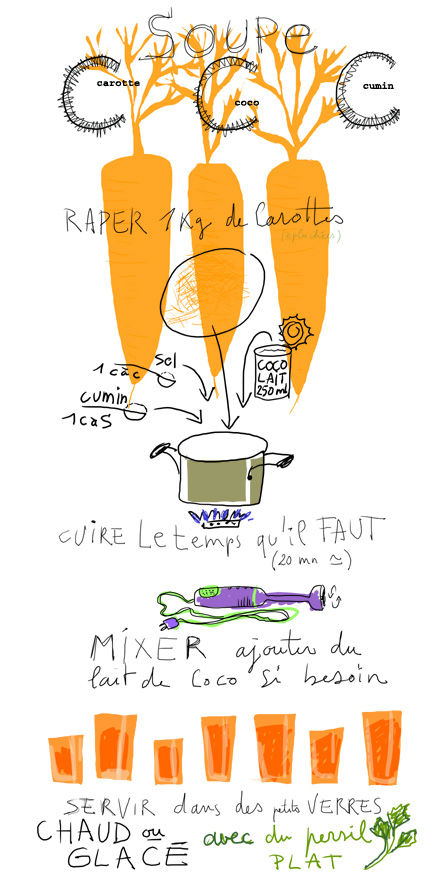 Soupe
C C C
carotte
coco
cumin
RAPER 1 Kg de Carottes
(épluchées)
1 càc sel
cumin
1 càS
COCO
LAIT
250 ml
CUIRE Le temps qu'il FAUT
(20 mn ≃)
MIXER ajouter du
lait de coco si besoin
SERVIR dans des petits VERRES
CHAUD ou
GLACÉ
avec du persil
PLAT